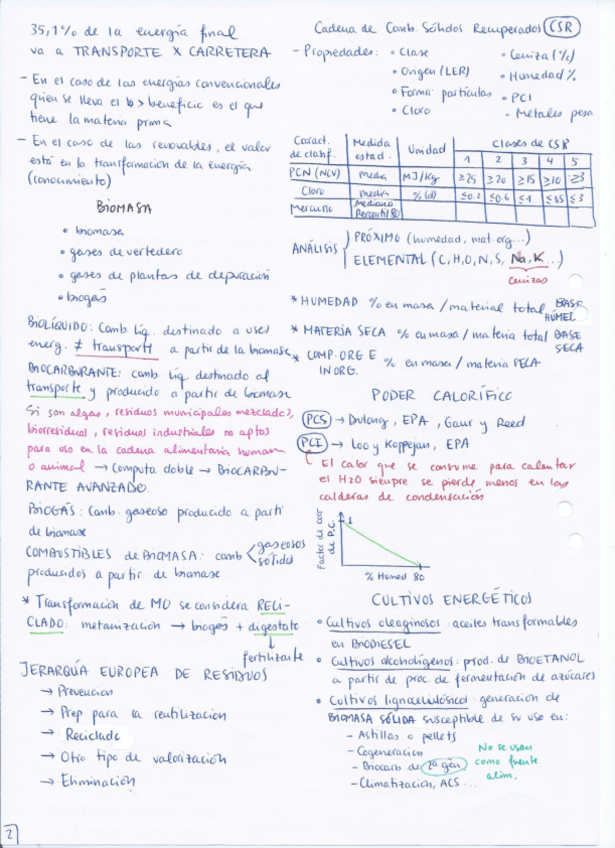 35,1% de la energía final
va a TRANSPORTE X CARRETERA
- En el caso de las energías convencionales
quien se lleva el > beneficio es el que
tiene la materia prima
- En el caso de las renovables, el valor
está en la transformación de la energía
(conocimiento)
BIOMASA
• biomasa
• gases de vertedero
• gases de plantas de depuración
• biogás
BIOLÍQUIDO: Comb líq. destinado a usos
energ. ≠ transporte a partir de la biomasa
BIOCARBURANTE: comb. líq. destinado al
transporte y producido a partir de biomasa
Si son algas, residuos municipales mezclados,
biorresiduos, residuos industriales no aptos
para uso en la cadena alimentaria humana
o animal → computa doble → BIOCARBU-
RANTE AVANZADO.
BIOGÁS: Comb. gaseoso producido a partir
de biomasa
COMBUSTIBLES de BIOMASA: comb < gaseosos
sólidos
producidos a partir de biomasa
* Transformación de MO se considera RECI-
CLADO: metanización → biogás + digestato
↓
fertilizante
JERARQUÍA EUROPEA DE RESIDUOS
→ Prevención
→ Prep para la reutilización
→ Reciclado
→ Otro tipo de valorización
→ Eliminación
2
Cadena de Comb. Sólidos Recuperados (CSR)
- Propiedades: • Clase • Ceniza (%)
• Origen (LER) • Humedad %
• Forma partículas • PCI
• Cloro • Metales pesa
Caract. de clasif. Medida estad. Unidad Clases de CSR
1 2 3 4 5
PCN (NCV) Media MJ/Kg ≥25 ≥20 ≥15 ≥10 ≥3
Cloro media % (d) ≤0.2 ≤0.6 ≤1 ≤1.5 ≤3
Mercurio Mediana Percentil 80
ANÁLISIS { PRÓXIMO (humedad, mat. org...)
ELEMENTAL (C, H, O, N, S, Na, K...)
Cenizas
* HUMEDAD % en masa / material total BASE HÚMEDA
* MATERIA SECA % en masa / materia total BASE SECA
* COMP. ORG E INORG. % en masa / materia SECA
PODER CALORÍFICO
(PCS) → Dulong, EPA, Gaur y Reed
(PCI) → Loo y Koppejan, EPA
El calor que se consume para calentar
el H2O siempre se pierde menos en las
calderas de condensación
Factor de corr de P.C.
1
% Humed 80
CULTIVOS ENERGÉTICOS
• Cultivos oleaginosos: aceites transformables
en BIODIESEL
• Cultivos alcoholígenos: prod. de BIOETANOL
a partir de proc. de fermentación de azúcares
• Cultivos lignocelulósicos: generación de
BIOMASA SÓLIDA susceptible de su uso en:
- Astillas o pellets
- Cogeneración
- Biocarb de 2ª gen.
- Climatización, ACS...
No se usan
como fuente
alim.